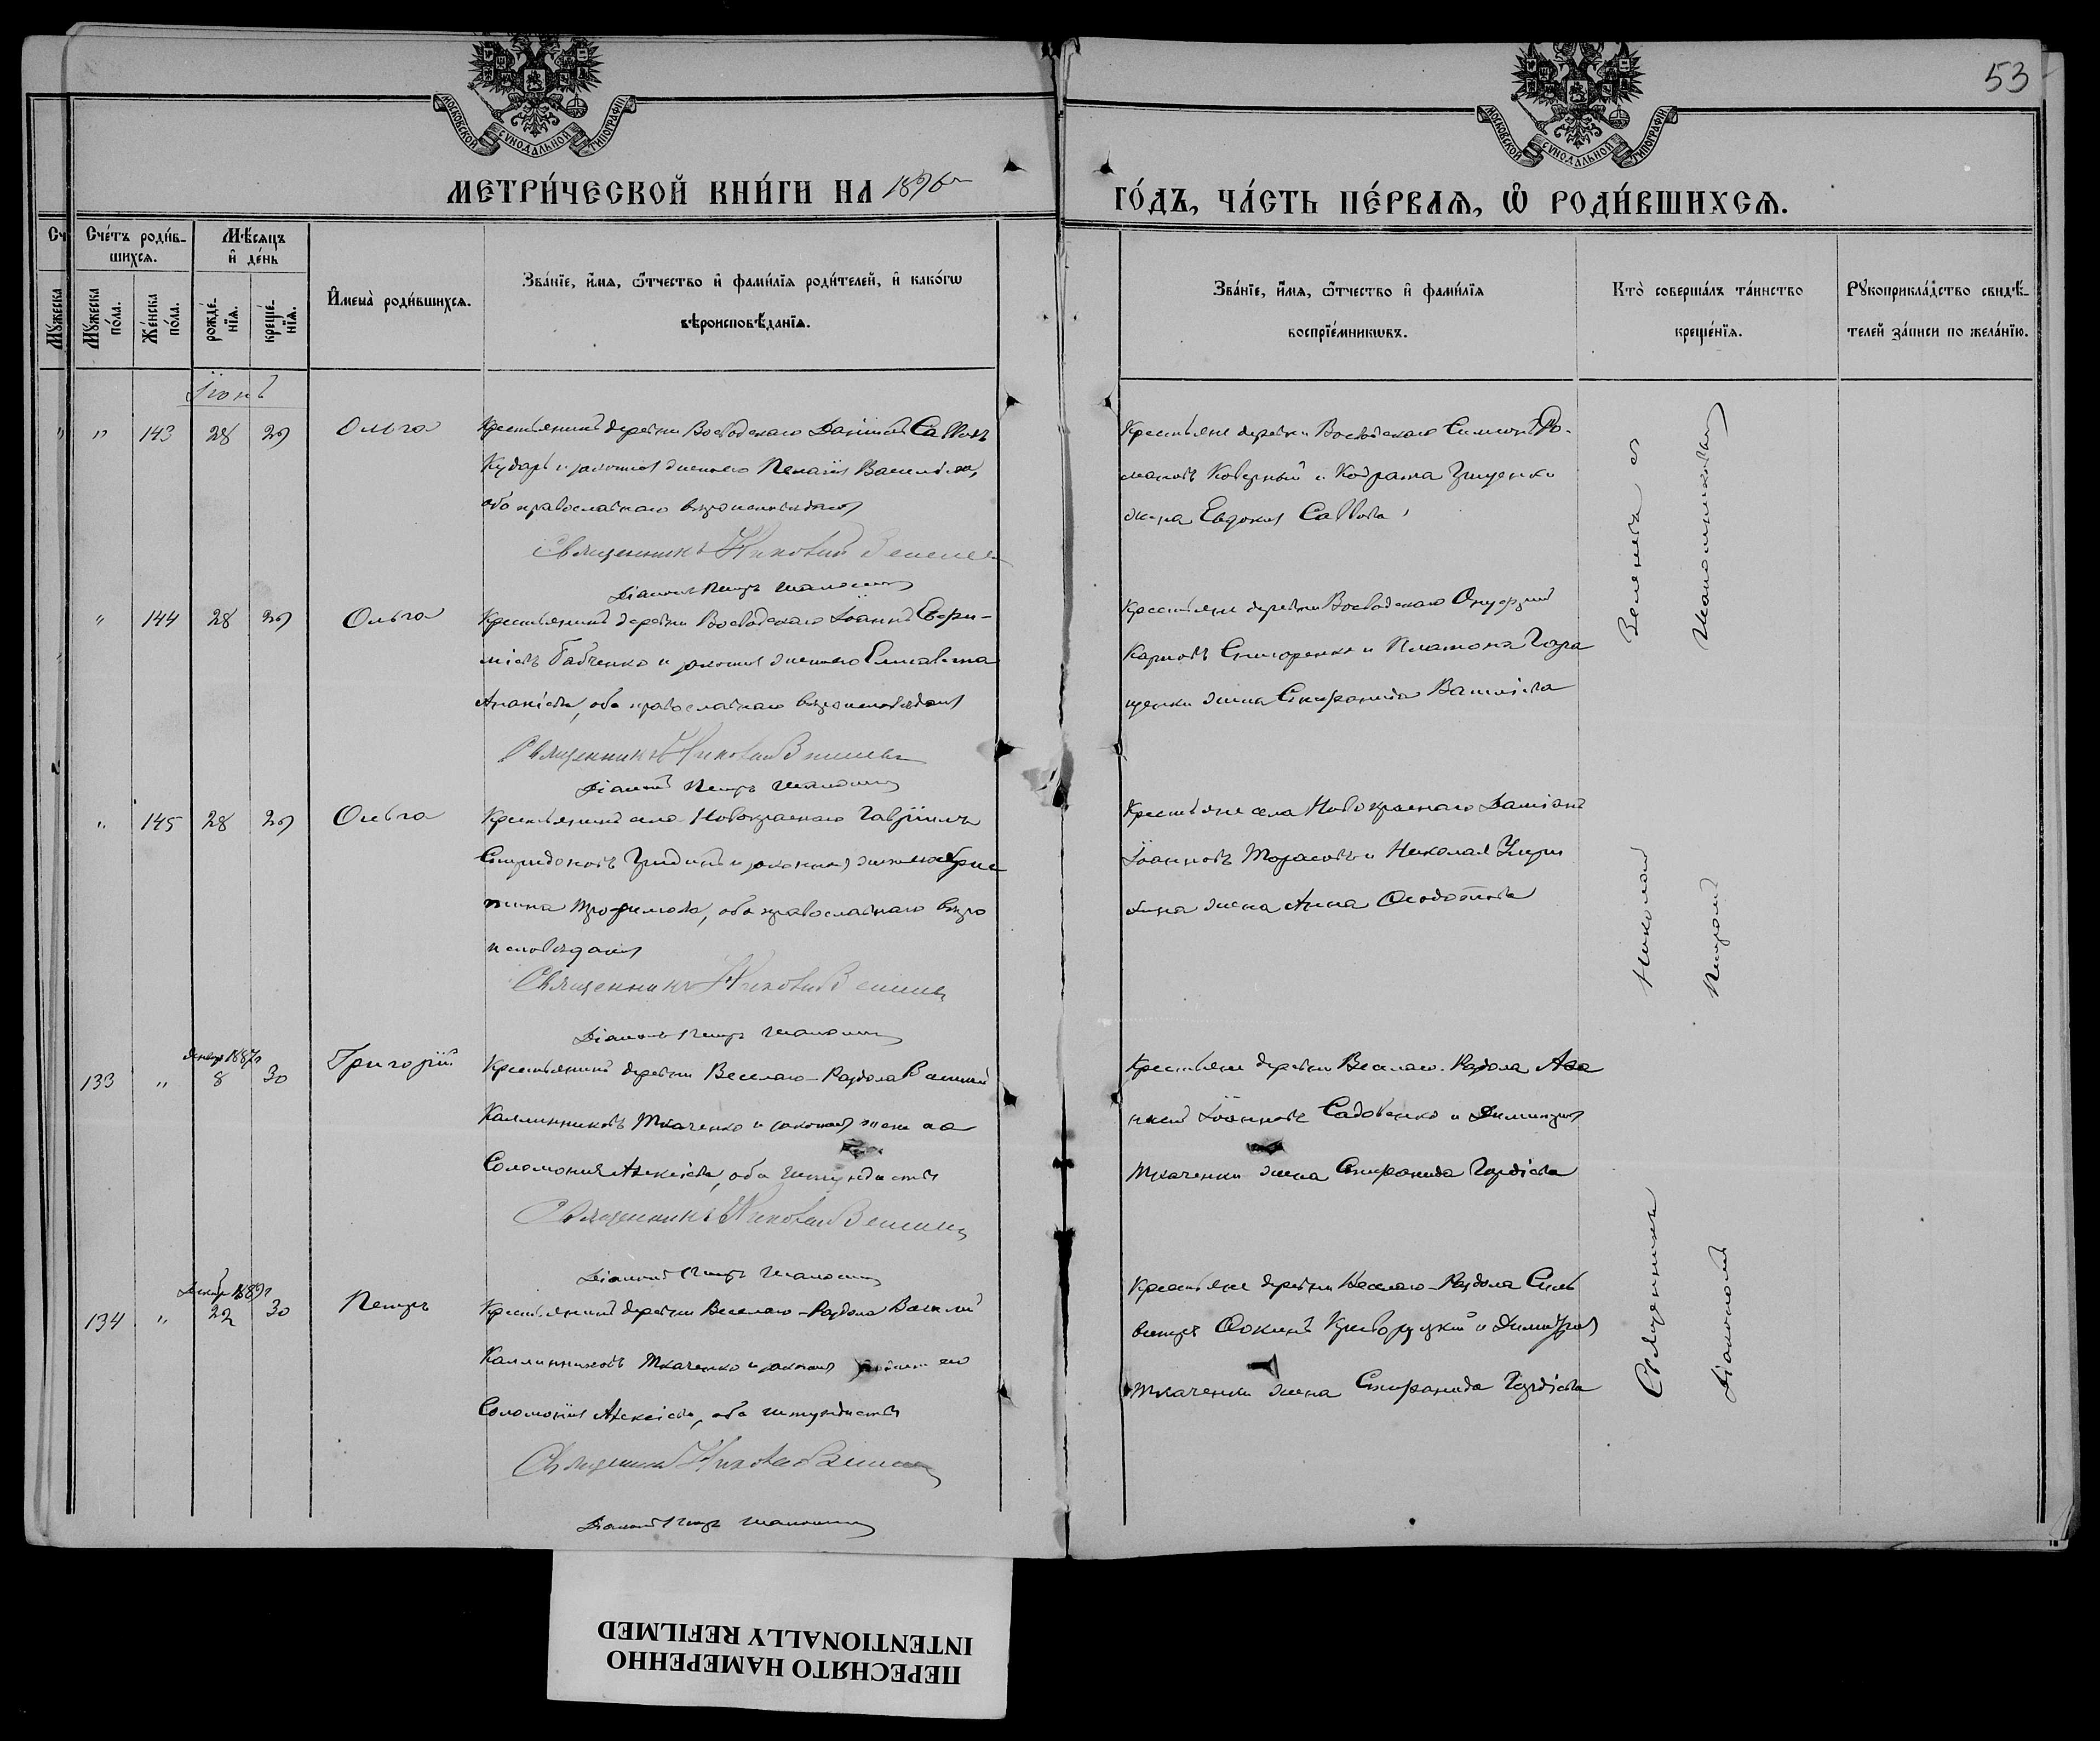 МОСКОВСКОЙ СѴНОДАЛЬНОЙ ТИПОГРАФІИ
МОСКОВСКОЙ СѴНОДАЛЬНОЙ ТИПОГРАФІИ
53
МЕТРИ́ЧЕСКОЙ КНИ́ГИ НА 1896 г
ГО́ДЪ, ЧА́СТЬ ПЕ́РВАѦ, Ѡ҆ РОДИ́ВШИХСѦ.
Сч
Мꙋжеска
Сче́тъ роди́в-
шихсѧ.
Мꙋжеска
по́ла.
Же́нска
по́ла.
Мѣ́сѧцъ
и҆ де́нь
рожде́-
нїѧ.
креще́-
нїѧ.
И҆мена̀ роди́вшихсѧ.
Зва́нїе, и҆́мѧ, ѻ҆́тчество и҆ фами́лїѧ роди́телей, и҆ како́гѡ
вѣроисповѣ́данїѧ.
Зва́нїе, и҆́мѧ, ѻ҆́тчество и҆ фами́лїѧ
воспрїе́мникѡвъ.
Кто̀ соверша́лъ та́инство
креще́нїѧ.
Рꙋкоприкла́дство свидѣ́-
телей за́писи по жела́нїю.
Іюнь
" 143 28 29 Ольга
Крестьянинъ деревни Воеводскаго Даніилъ Саввовъ
Кударь и законная жена его Пелагія Василіева,
оба православнаго вѣроисповѣданія
Священникъ Николай
Діаконъ Петръ
Крестьяне деревни Воеводскаго Симеонъ Ро-
мановъ Коверный и Кодрата Грищенко
жена Евдокия Саввова
" 144 28 29 Ольга
Крестьянинъ деревни Воеводскаго Іоаннъ Евфи-
міевъ Бабченко и законная жена его Елисавета
Ананіева, оба православнаго вѣроисповѣданія
Священникъ Николай
Діаконъ Петръ
Крестьяне деревни Воеводскаго Онуфрий
Карповъ и Платона Гора
щенки жена Стефанида Василіева
" 145 28 29 Ольга
Крестьянинъ села Новокраснаго Гавріилъ
Спиридоновъ и законная жена его Хрис
тина Трофимова, оба православнаго вѣро
исповѣданія
Священникъ Николай
Діаконъ Петръ
Крестьяне села Новокраснаго Даміанъ
Іоанновъ Тарасовъ и Николая
жена Анна Ѳеодотова
Декабр 1887 г
133 " 8 30 Григорій
Крестьянинъ деревни Веселаго-Раздола Василий
Каллинниковъ Ткаченко и законная жена его
Соломония Алексіева, оба штундисты
Священникъ Николай
Діаконъ Петръ
Крестьяне деревни Веселаго-Раздола Афа
насій Іоанновъ Садовенко и Димитрія
Ткаченки жена Стефанида Гордіева
Декабр 1889 г
134 " 22 30 Петръ
Крестьянинъ деревни Веселаго-Раздола Василий
Каллинниковъ Ткаченко и законная жена его
Соломонія Алексіева, оба штундисты
Священникъ Николай
Діаконъ Петръ
Крестьяне деревни Веселаго-Раздола Силь
вестръ Ѳокинъ Криворуцкий и Димитрия
Ткаченки жена Стефанида Гордіева
Священникъ Николай
Діакономъ Петромъ
ПЕРЕСНЯТО НАМЕРЕННО
INTENTIONALLY REFILMED